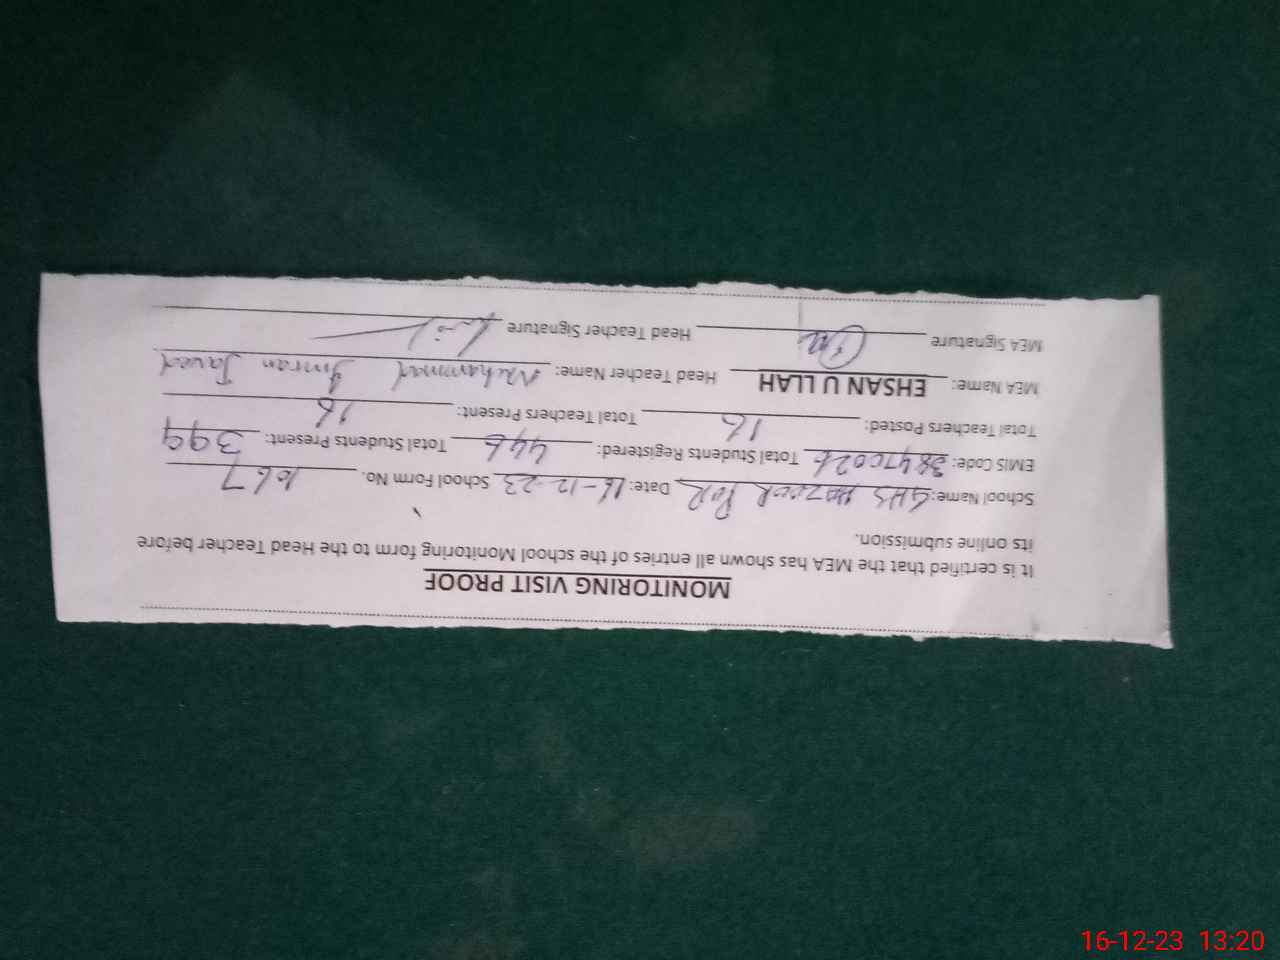 MONITORING VISIT PROOF
It is certified that the MEA has shown all entries of the school Monitoring form to the Head Teacher before
its online submission.
School Name: GHS Date: 16-12-23 School Form No. 1067
EMIS Code: 38470026 Total Students Registered: 446 Total Students Present: 399
Total Teachers Posted: 16 Total Teachers Present: 16
MEA Name: EHSAN ULLAH Head Teacher Name: Muhammad Imran Javed
MEA Signature Head Teacher Signature
16-12-23 13:20